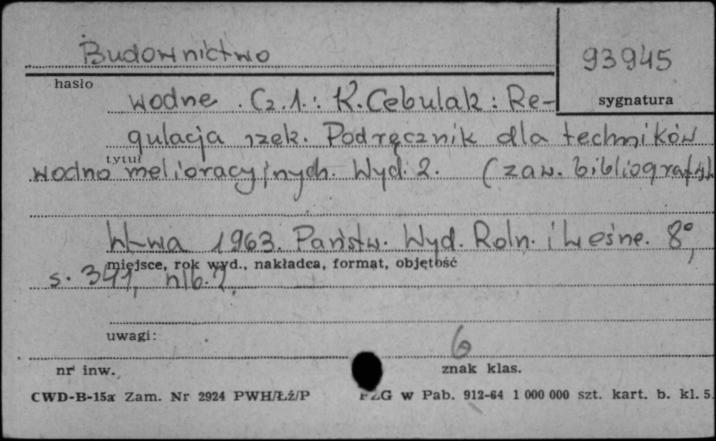 Budownictwo
93945
hasło
sygnatura
wodne. Cz.1.: K. Cebulak: Re-
gulacja rzek. Podręcznik dla techników
tytuł
wodno melioracyjnych. Wyd. 2. (zaw. bibliografię)
W-wa 1963. Państw. Wyd. Roln. i Leśne. 8°,
miejsce, rok wyd., nakładca, format, objętość
s. 391, nlb.
uwagi:
6
nr inw.
znak klas.
CWD-B-15a Zam. Nr 2924 PWH/Łź/P PZG w Pab. 912-64 1 000 000 szt. kart. b. kl. 5